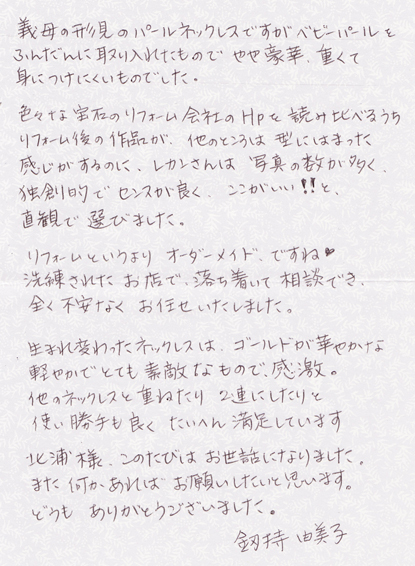 義母の形見のパールネックレスですがベビーパールを
ふんだんに取り入れたもので やや豪華、重くて
身につけにくいものでした。
色々な宝石のリフォーム会社のHpを読み比べるうち
リフォーム後の作品が、他のところは型にはまった
感じがするのに、レカンさんは 写真の数が多く、
独創的でセンスが良く、ここがいい!!と、
直観で選びました。
リフォームというより オーダーメイド、ですね♥
洗練されたお店で、落ち着いて相談でき、
全く不安なく お任せいたしました。
生まれ変わったネックレスは、ゴールドが華やかな
軽やかでとても素敵なもので、感激。
他のネックレスと重ねたり 2連にしたりと
使い勝手も良く たいへん満足しています
北浦様、このたびはお世話になりました。
また何かあればお願いしたいと思います。
どうも ありがとうございました。
釼持 由美子